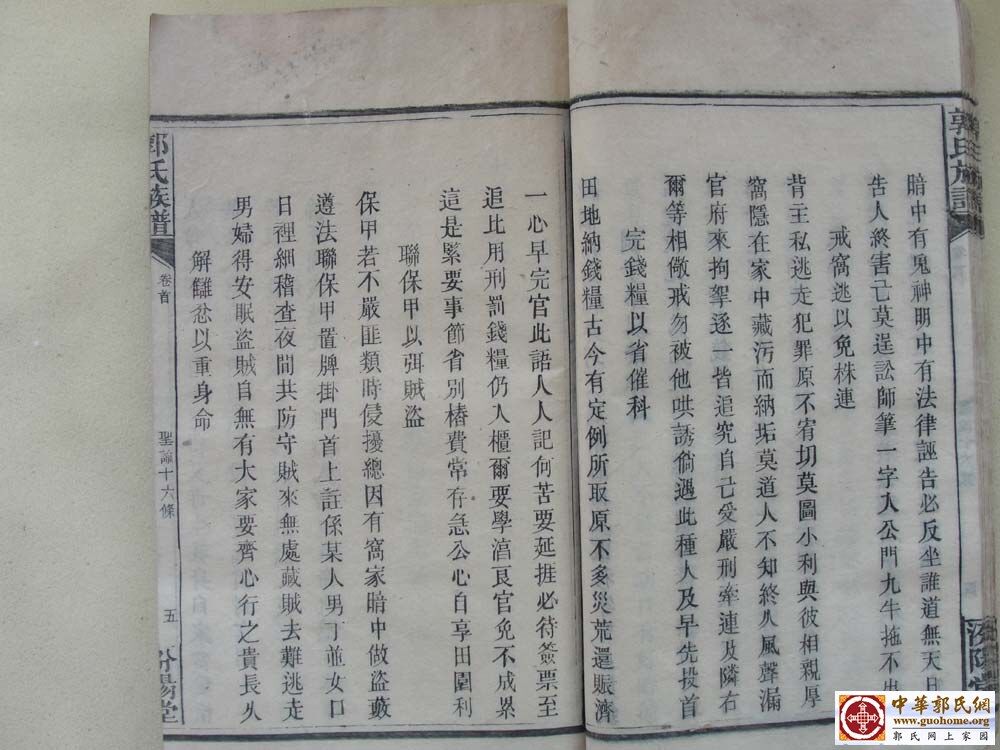 暗中有鬼神明中有法律誣告必反坐誰道無天日
告人終害己莫逞訟師筆一字入公門九牛拖不出
戒窩逃以免株連
背主私逃走犯罪原不宥切莫圖小利與彼相親厚
窩隱在家中藏污而納垢莫道人不知終久風聲漏
官府來拘拏逐一皆追究自己受嚴刑牽連及隣右
爾等相儆戒勿被他哄誘倘遇此種人及早先投首
完錢糧以省催科
田地納錢糧古今有定例所取原不多災荒還賑濟
郭氏族譜
汾陽堂
一心早完官此語人人記何苦要延捱必待簽票至
追比用刑罰錢糧仍入櫃爾要學滑良官免不成累
這是緊要事節省別樁費常存急公心自享田園利
聯保甲以弭賊盜
保甲若不嚴匪類時侵擾總因有窩家暗中做盜藪
遵法聯保甲置牌掛門首上註係某人男丁並女口
日裡細稽查夜間共防守賊來無處藏賊去難逃走
男婦得安眠盜賊自無有大家要齊心行之貴長久
解讎忿以重身命
郭氏族譜
卷首
聖諭十六條
五
汾陽堂
中華郭氏網
www.guohome.com
郭氏网上家园